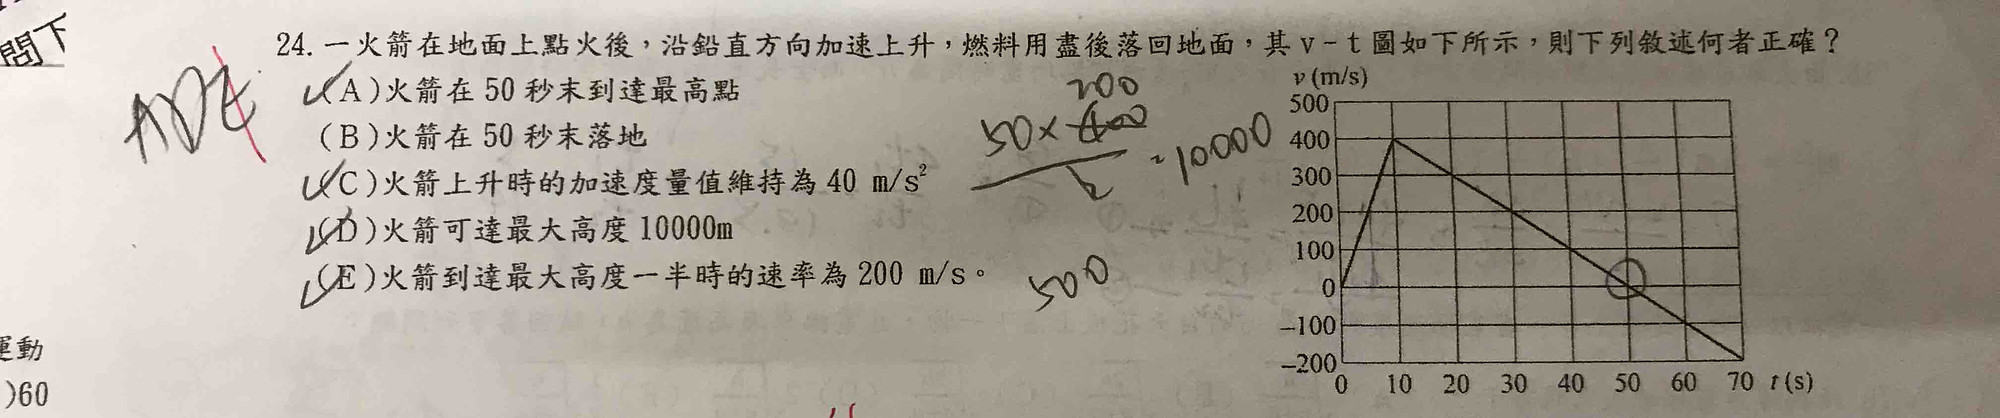 問下
24. 一火箭在地面上點火後，沿鉛直方向加速上升，燃料用盡後落回地面，其 v－t 圖如下所示，則下列敘述何者正確？
(A)火箭在 50 秒末到達最高點
(B)火箭在 50 秒末落地
(C)火箭上升時的加速度量值維持為 40 m/s²
(D)火箭可達最大高度 10000m
(E)火箭到達最大高度一半時的速率為 200 m/s。
ADE
200
50×400
2
=10000
500
v (m/s)
500
400
300
200
100
0
−100
−200
0 10 20 30 40 50 60 70 t (s)
運動
)60